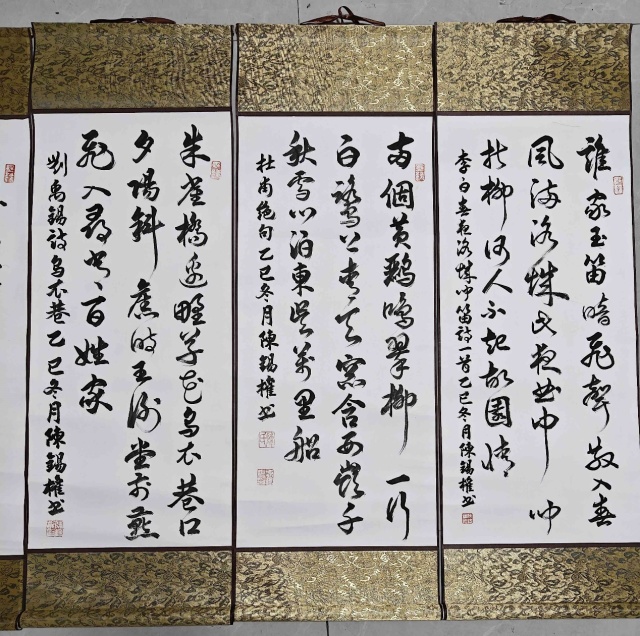 誰家玉笛暗飛聲散入春
風滿洛城此夜曲中聞
折柳何人不起故園情
李白春夜洛城聞笛詩一首乙巳冬月陳錫權書
兩個黃鸝鳴翠柳一行
白鷺上青天窓含西嶺千
秋雪門泊東吳萬里船
杜甫絕句乙巳冬月陳錫權書
朱雀橋邊野草花烏衣巷口
夕陽斜舊時王謝堂前燕
飛入尋常百姓家
劉禹錫詩烏衣巷乙巳冬月陳錫權書